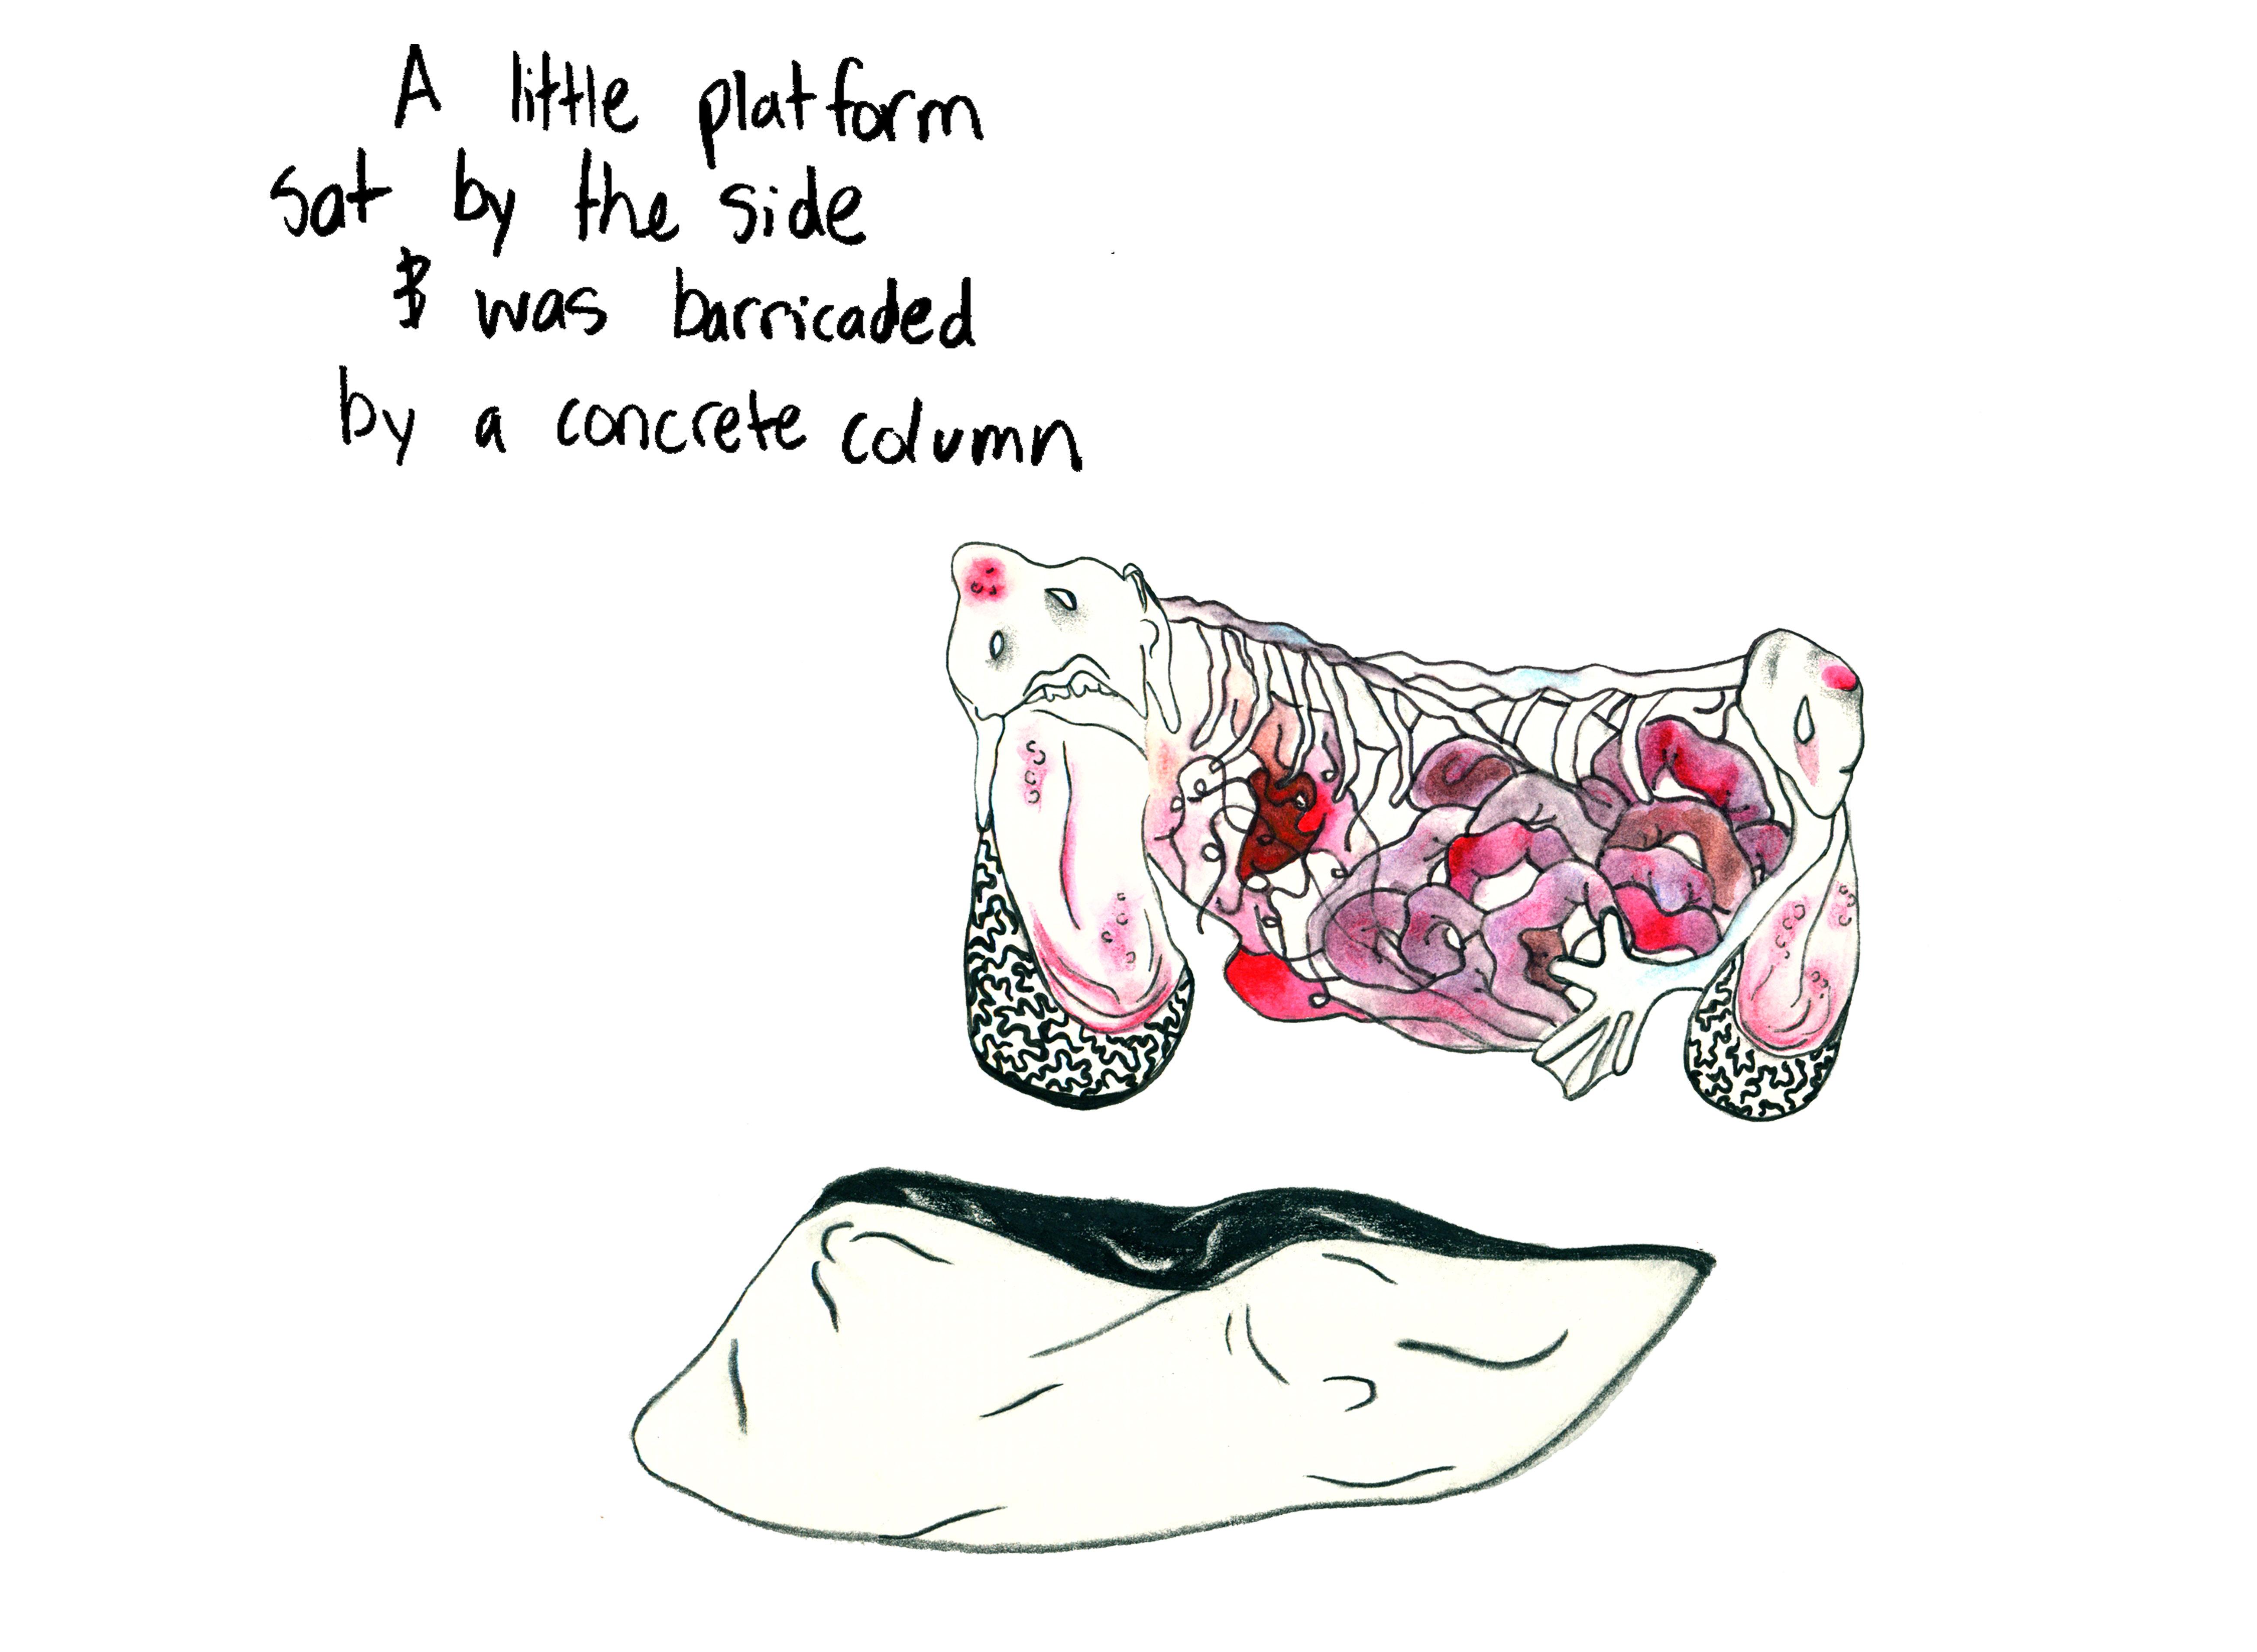 A little platform
sat by the side
& was barricaded
by a concrete column